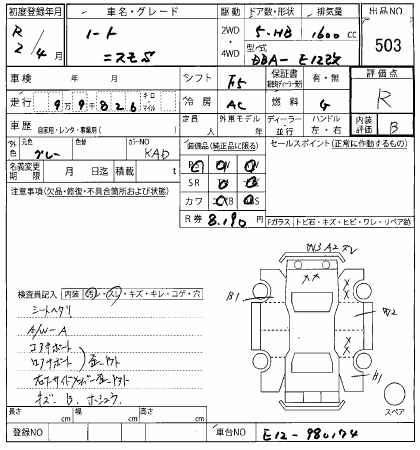 初度登録年月 車名・グレード 駆動 ドア数・形状 排気量 出品NO
R 2年 4月
ノート
ニスモS
2WD ・ 4WD
5・HB 1600 cc
型式 DBA- E12改
503
車検 年 月 シフト F5 保証書 有・無 評価点
走行 9万9千826 キロ・マイル 冷房 AC 燃料 G R
車歴 自家用・レンタ・事業用( ) 定員 人 外車モデル 年 ディーラー・並行 ハンドル 左・右 内装評価 B
外色 元色 グレー 色替 カラーNO KAD
装備品(純正品に限る) セールスポイント(正常に作動するもの)
名義変更期限 月 日迄 積載 t
PS PW
SR
カワ ABS
R券 8,190 円
注意事項(欠品・修復・不具合箇所および状態)
Fガラス トビ石・キズ・ヒビ・ワレ・リペア跡
検査員記入 内装 汚レ・スレ・キズ・キレ・コゲ・穴
シートヘタリ
A/W-A
コアサポート
キズ B
長さ cm 幅 cm 高さ cm
A2
B1
B1
スペア
登録NO 車台NO E12-980174